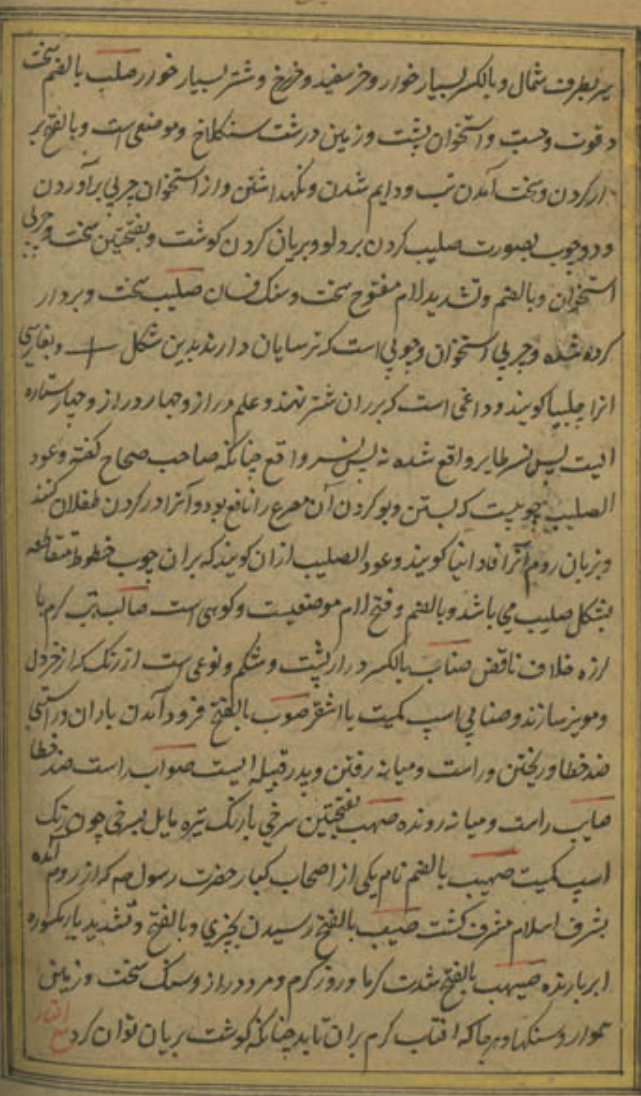 پر بطرف شمال و بالکسر بسیار خوار و خر سفید و خرخ و شتر بسیار خوار صلب بالضم سخت
و قوت و حسب و استخوان پشت و زمین درشت سنکلاخ و موضعی است و بالفتح بر
دار کردن و سخت آمدن تب و دایم شدن و نکهداشتن و از استخوان چربی برآوردن
و دو چوب بصورت صلیب کردن بر دلو و بریان کردن کوشت و بفتحتین سخت و چربی
استخوان و بالضم و تشدید لام مفتوح سخت و سنک فسان صلیب سخت و بردار
کرده شده و چربی استخوان و چوبی است که ترسایان دارند بدین شکل + و بفارسی
انرا چلیپا کویند و داغی است که بر ران شتر نهند و علم دراز و چهار دراز و چهار ستاره
ایست پس نسر طایر واقع شده نه پس نسر واقع چنانکه صاحب صحاح کفته و عود
الصلیب چوبیست که بستن و بو کردن آن مصرع را نافع بود و آنرا در کردن طفلان کنند
و بزبان روم آنرا فاوانیا کویند و عود الصلیب ازان کویند که بران چوب خطوط متقاطعه
بشکل صلیب می باشد و بالضم و فتح لام موضعیست و کوهی است صالب تب کرم با
لرزه خلاف ناقض صناب بالکسر دراز پشت و شکم و نوعی است از رنک که از خردل
و مویز سازند و صنابی اسپ کمیت یا اشقر صوب بالفتح فرود آمدن باران و راستی
ضد خطا و ریختن و راست و میانه رفتن و پدر قبیله ایست صواب راست ضد خطا
صایب راست و میانه رونده صهب بفتحتین سرخی با رنک تیره مایل بسرخی چون رنک
اسپ کمیت صهیب بالضم نام یکی از اصحاب کبار حضرت رسول صه که از روم آمده
بشرف اسلام مشرف کشت صیب بالفتح رسیدن بچیزی و بالفتح و تشدید یا مکسوره
ابر بارنده صیهب بالفتح شدت کرما و روز کرم و مرد دراز و سنک سخت و زمین
هموار و سنکها و هر جا که افتاب کرم بران تابد چنانکه کوشت بریان توان کرد